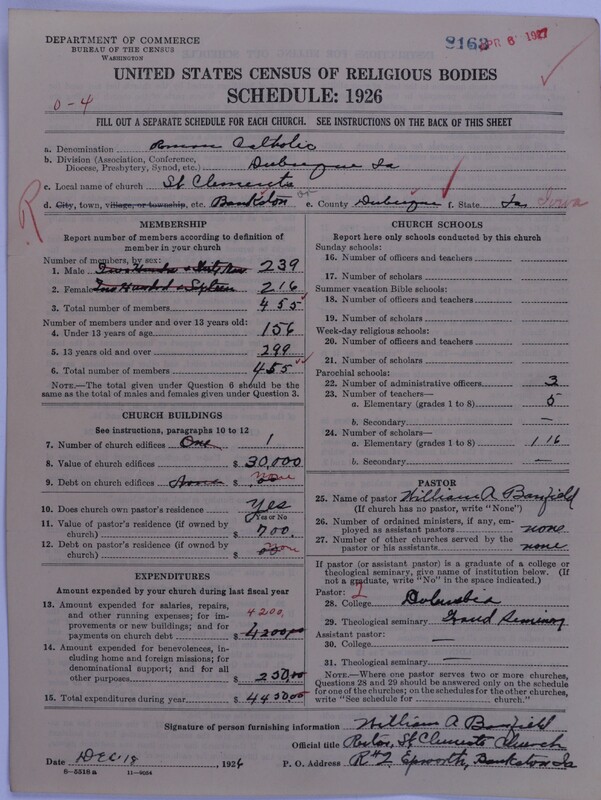 DEPARTMENT OF COMMERCE
BUREAU OF THE CENSUS
WASHINGTON
8163 APR 6 1927
UNITED STATES CENSUS OF RELIGIOUS BODIES
SCHEDULE: 1926
0-4
FILL OUT A SEPARATE SCHEDULE FOR EACH CHURCH. SEE INSTRUCTIONS ON THE BACK OF THIS SHEET
a. Denomination Roman Catholic
b. Division (Association, Conference, Diocese, Presbytery, Synod, etc.) Dubuque Ia
c. Local name of church St Clements
d. City, town, village, or township, etc. Bankston e. County Dubuque f. State Ia Iowa
R
MEMBERSHIP
Report number of members according to definition of member in your church
Number of members, by sex:
1. Male 239
2. Female Two Hundred & Sixteen 216
3. Total number of members 455
Number of members under and over 13 years old:
4. Under 13 years of age 156
5. 13 years old and over 299
6. Total number of members 455
NOTE.—The total given under Question 6 should be the same as the total of males and females given under Question 3.
CHURCH BUILDINGS
See instructions, paragraphs 10 to 12
7. Number of church edifices One 1
8. Value of church edifices $ 30,000
9. Debt on church edifices None $ none
10. Does church own pastor's residence Yes
Yes or No
11. Value of pastor's residence (if owned by church) $ 700.
12. Debt on pastor's residence (if owned by church) $ none
EXPENDITURES
Amount expended by your church during last fiscal year
13. Amount expended for salaries, repairs, and other running expenses; for improvements or new buildings; and for payments on church debt $ 4200.00
4200.
14. Amount expended for benevolences, including home and foreign missions; for denominational support; and for all other purposes $ 250.00
15. Total expenditures during year $ 4450.00
CHURCH SCHOOLS
Report here only schools conducted by this church
Sunday schools:
16. Number of officers and teachers
17. Number of scholars
Summer vacation Bible schools:
18. Number of officers and teachers
19. Number of scholars
Week-day religious schools:
20. Number of officers and teachers
21. Number of scholars
Parochial schools:
22. Number of administrative officers 3
23. Number of teachers—
a. Elementary (grades 1 to 8) 5
b. Secondary —
24. Number of scholars—
a. Elementary (grades 1 to 8) 116
b. Secondary —
PASTOR
25. Name of pastor William A Banfield
(If church has no pastor, write "None")
26. Number of ordained ministers, if any, employed as assistant pastors none
27. Number of other churches served by the pastor or his assistants none
If pastor (or assistant pastor) is a graduate of a college or theological seminary, give name of institution below. (If not a graduate, write "No" in the space indicated.)
Pastor:
28. College Columbia
29. Theological seminary Grand Seminary
Assistant pastor:
30. College —
31. Theological seminary —
NOTE.—Where one pastor serves two or more churches, Questions 28 and 29 should be answered only on the schedule for one of the churches; on the schedules for the other churches, write "See schedule for church.")
Signature of person furnishing information William A Banfield
Official title Rector, St Clements Church
Date Dec 18, 1926 P. O. Address R#2 Epworth, Bankston Ia
8-5518 a 11-9024